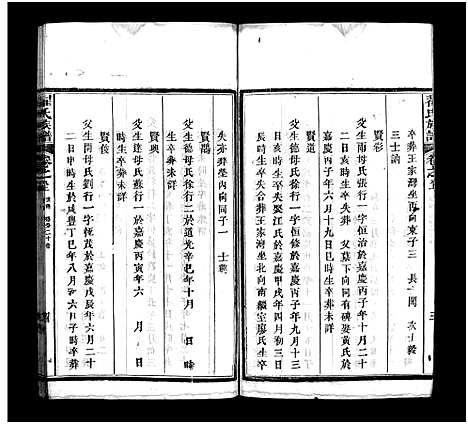 翟氏族譜
卷之
卒葬王家灣坐西向東子三 長 閏 次士毅
三士訥
賢彩
父生雨母氏張行一字恒治於嘉慶甲子年十月二十
日亥時生卒葬父墓下向同有碑娶黃氏於
嘉慶丙子年六月十九日巳時生卒葬未詳
賢道
父生德母氏徐行一字恒修於嘉慶甲子年九月十三
日亥時生卒失合葬王家灣坐北向南繼室廖氏生卒
失亦葬塋內向同子一 士
賢鵑
父生德母氏徐行二於道光辛巳年十月 日 時
生卒葬未詳
賢輿
父生達母氏蘇行一於嘉慶丙寅年六 月 日
時生卒葬未詳
賢俊
父生開母氏劉行一字恆茂於嘉慶戊辰年六月二十
二日申時生於咸豐丁巳年八月初六日子時卒葬
氏族譜
卷之